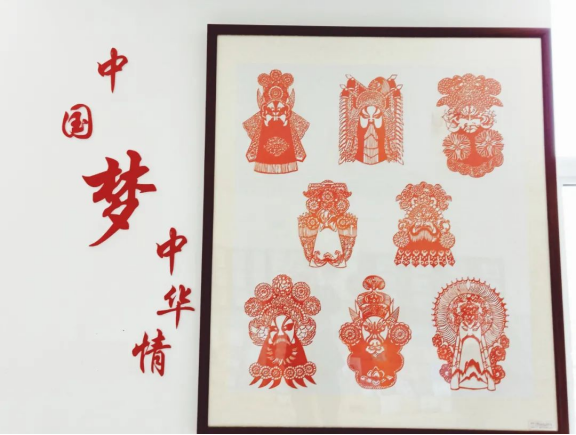 中国梦
中华情